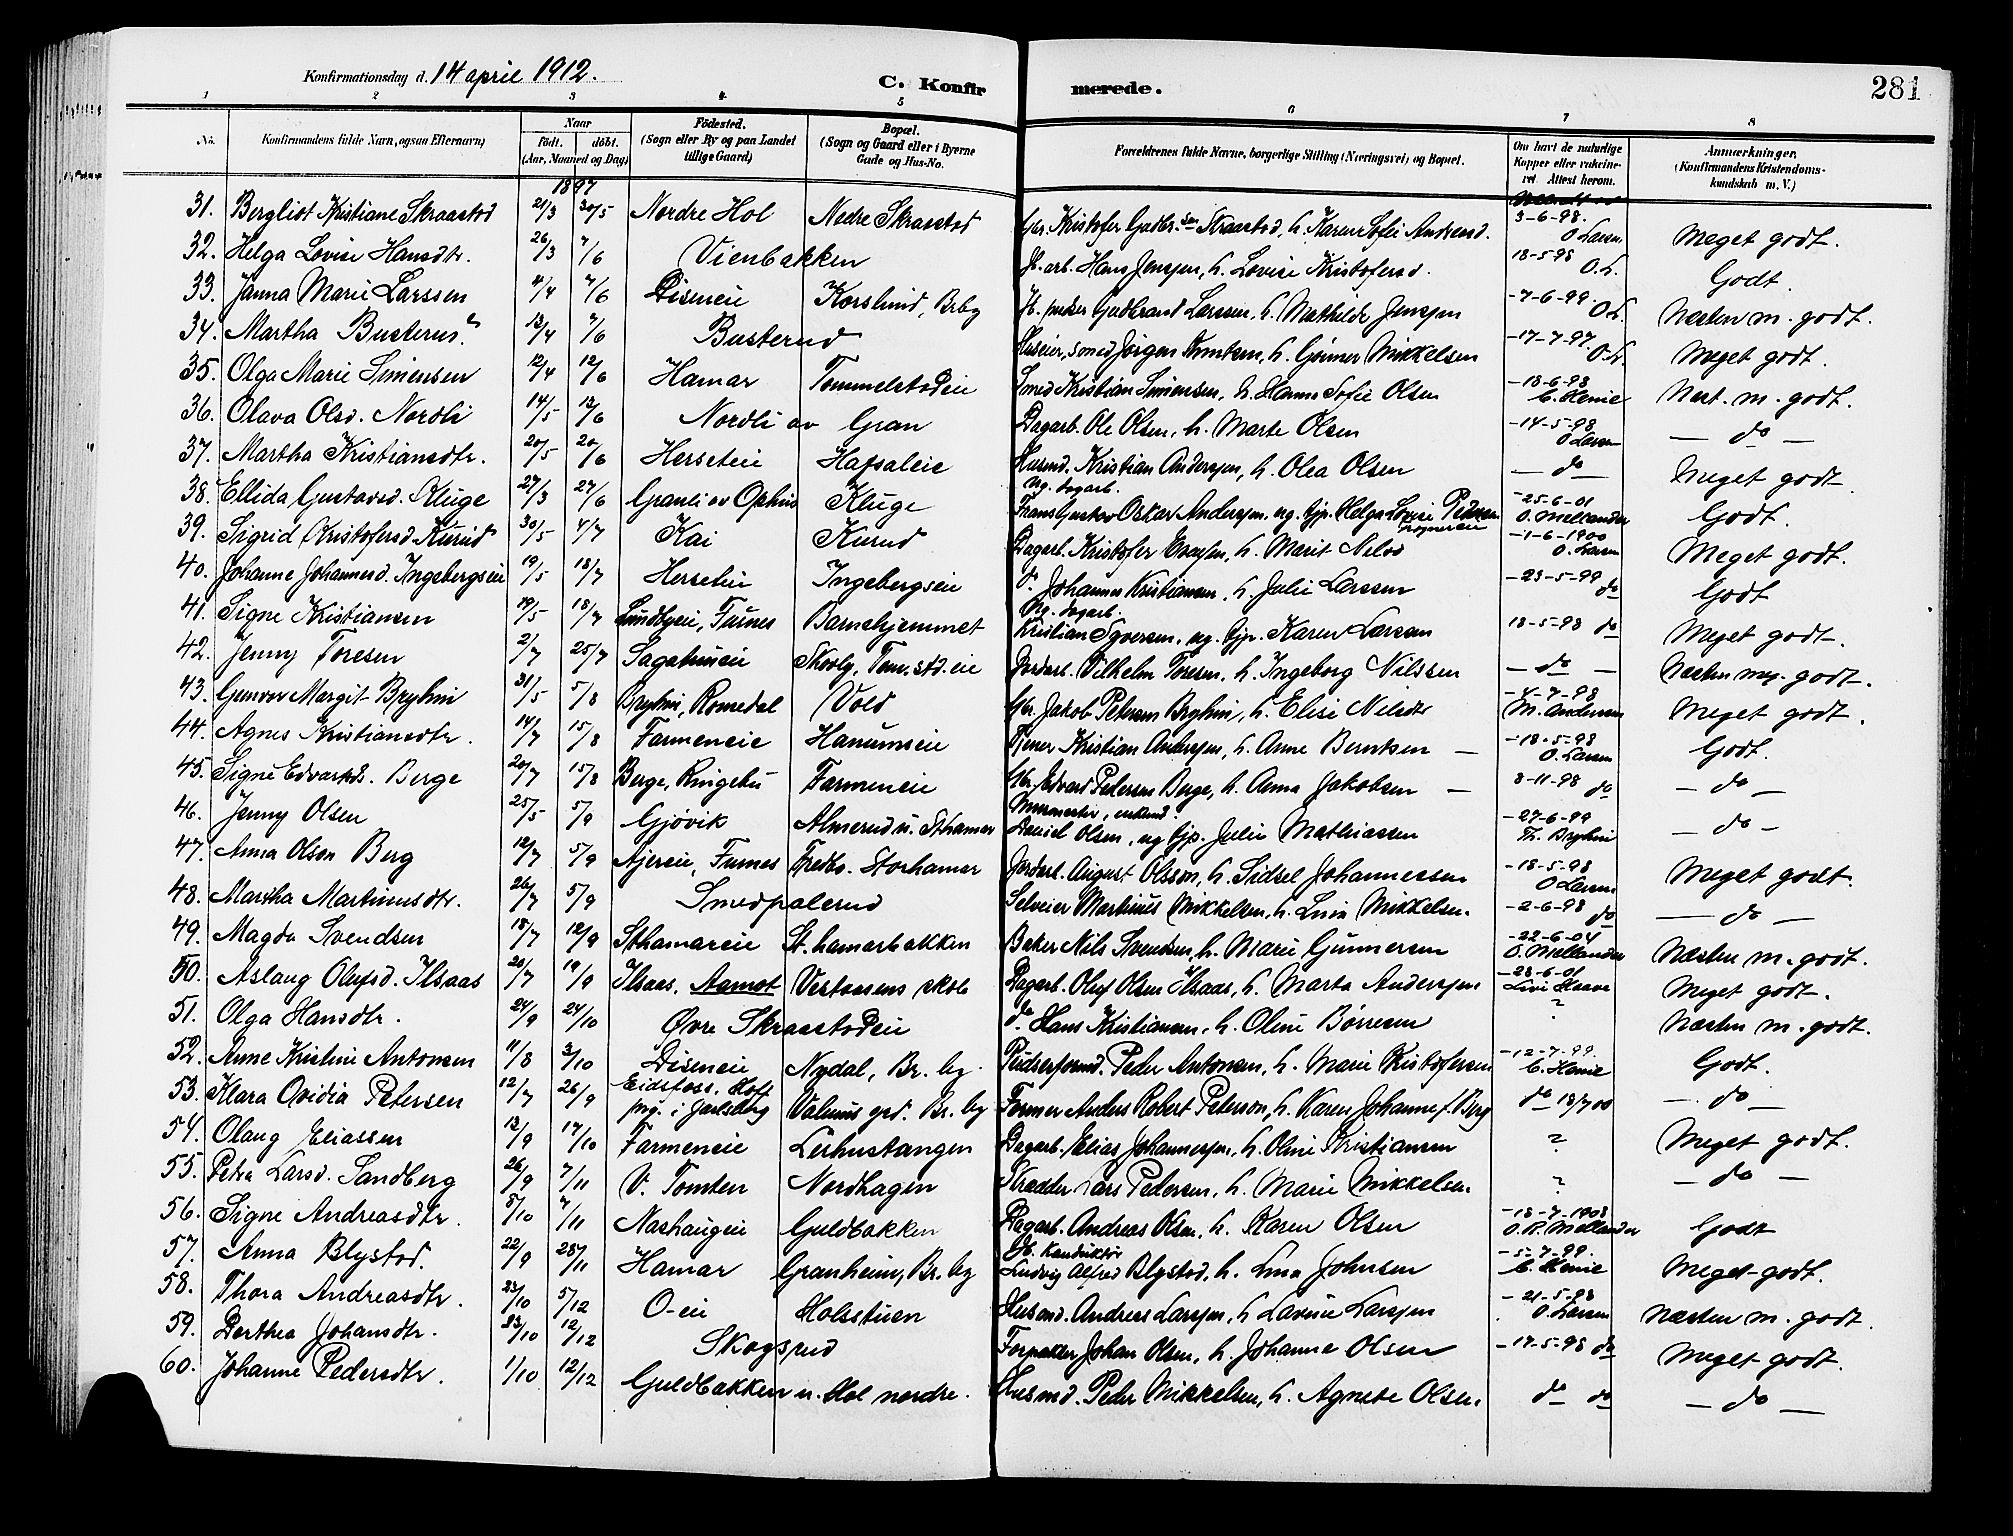 Konfirmationsdag d. 14 april 1912.
C. Konfirmerede.
281
1 2 3 4 5 6 7 8
No. Konfirmandens fulde Navn, ogsaa Efternavn) Naar Födt. döbt. (Aar, Maaned og Dag) Födested. (Sogn eller By og paa Landet tillige Gaard) Bopæl. (Sogn og Gaard eller i Byerne Gade og Hus-No. Forældrenes fulde Navne, borgerlige Stilling (Næringsvei) og Bopæl. Om havt de naturlige Kopper eller vakcineret. Attest herom. Anmærkninger. (Konfirmandens Kristendomskundskab m. V.)
1897
31. Bergliot Kristiane Skraastad 21/3 30/5 Nordre Hol Nedre Skraastad Gbr. Kristofer Gudbr.sen Skraastad, h. Karen Sofie Andersd. 3-6-98. O Larsen Meget godt.
32. Helga Lovise Hansdtr. 26/3 7/6 Vienbakken J. arb. Hans Jensen, h. Lovise Kristofersd. 18-5-98 O.L. Godt.
33. Janna Marie Larssen 4/4 7/6 Diseneie Korslund, Brby Gudbrand Larssen, h. Mathilde Jensen -7-6-99. O.L. Næsten m. godt.
34. Martha Busterud. 13/4 7/6 Busterud Huseier, smed Jörgen Knutsen, h. Mikkelsen -17-7-97. O.L. Meget godt.
35. Olga Marie Simensen 12/4 12/6 Hamar Tommelstadeie Smed Kristian Simensen, h. Hanna Sofie Olsen -18-6-98 C. Henie Næst. m. godt.
36. Olava Olsd. Nordli 14/5 12/6 Nordli av Gran Dagarb. Ole Olsen, h. Marte Olsen -14-5-98 O Larsen — do —
37. Martha Kristiansdtr. 20/5 20/6 Herseteie Hafsaleie Husmd. Kristian Andersen, h. Olea Olsen — do — Meget godt.
38. Ellida Gustavsd. Kluge 27/3 27/6 Granli av Ophus Kluge Ug. dagarb. Frans Gustav Oskar Andersen, ug. tjp. Helga Lovise Pedersen -25-6-01 O. Mellander Godt.
39. Sigrid Kristofersd Kurud 30/5 4/7 Kai Kurud Dagarb. Kristofer Evensen, h. Marit Nilsd -1-6-1900 O. Larsen Meget godt.
40. Johanne Johannesd. Ingebergseie 19/5 18/7 Herseteie Ingebergseie do Johannes Kristiansen, h. Julie Larssen -23-5-99 do Godt
41. Signe Kristiansen 19/5 18/7 Lundbyeie, Furnes Barnehjemmet Ug. dagarb. Kristian Syversen, ug. tjp. Karen Larssen 18-5-98 do Meget godt.
42. Jenny Toresen 2/7 25/7 Sagatuneie Skoolg, Tom.std.eie Jordarb. Vilhelm Toresen, h. Ingeborg Nilssen — do — Næsten meg. godt.
43. Gunvor Margit Bryhni 31/5 5/8 Bryhni, Romedal Vold Gbr. Jakob Petersen Bryhni, h. Elise Nilsdtr -4-7-98 M. Andersen Meget godt.
44. Agnes Kristiansdtr. 14/7 15/8 Farmeneie Hanumseie Tjener Kristian Andersen, h. Anne Berntsen — -18-5-98 O. Larsen Godt.
45. Signe Edvardsd. Berge 20/7 15/8 Berge, Ringebu Farmeneie Gbr. Edvard Pedersen Berge, h. Anna Jakobsen — 8-11-98 do — do —
46. Jenny Olsen 25/5 5/9 Gjövik Almerud u. Sthamar Murmester, enkemd. Daniel Olsen, ug tjp. Julie Mathiassen -27-6-99 Th. Bryhni — do —
47. Anna Olson Berg 12/7 5/9 Ajereie, Furnes Fredbo. Storhamar Jordarb. August Olsson, h. Sidsel Johannessen -18-5-98 O Larsen Meget godt.
48. Martha Martinusdtr. 26/7 5/9 Smedpalerud Selveier Martinus Mikkelsen, h. Lina Mikkelsen. -2-6-98 do — do —
49. Magda Svendsen 18/7 12/9 Sthamareie St.hamarbakken Baker Nils Svendsen, h. Marie Gunnersen -22-6-04 O. Mellander Næsten m. godt.
50. Aslaug Olufsd. Ilsaas 20/7 19/9 Ilsaas, Aamot Vestaasens skole Dagarb. Oluf Olsen Ilsaas, h. Marta Andersen -23-6-01 Livi Haave Meget godt.
51. Olga Hansdtr. 24/9 24/10 Øvre Skraastadeie do Hans Kristiansen, h. Oline Börresen ? Næsten m. godt.
52. Anne Kristine Antonsen 11/8 3/10 Diseneie Nydal, Br. by. Pudserformd. Peder Antonsen, h. Marie Kristofersen -12-7-99. C. Henie Godt.
53. Klara Ovidia Petersen 12/7 26/9 Eidsfoss, Hof prg. i Jarlsberg Valmus grd. Br. by Former Anders Robert Peterson, h. Karen Johanne f. Berg do 18/7 00 — do —
54. Olaug Eliassen 13/9 17/10 Farmeneie Lerhustangen Dagarb. Elias Johannessen, h. Oline Kristiansen ? Meget godt.
55. Petra Larsd. Sandberg 26/9 7/11 V. Tomten Nordhagen Skrædder Lars Pedersen, h. Marie Mikkelsen ? — do —
56. Signe Andreasdtr. 5/10 7/11 Nashaugeie Guldbakken Dagarb. Andreas Olsen, h. Karen Olsen -18-7-1908 O.P. Mellander Godt
57. Anna Blystad. 22/9 28/11 Hamar Granheim, Br. by Jb. konduktör Ludvig Alfred Blystad, h. Lina Johnsen -5-7-99. C. Henie Meget godt.
58. Thora Andreasdtr. 23/10 5/12 O-eie Holsstuen Husmd. Andreas Larssen, h Lavine Larssen -21-5-98 O. Larsen Næsten m. godt.
59. Dorthea Johansdtr. 23/10 12/12 Skogsrud Forpakter Johan Olsen, h. Johanne Olsen -17-5-98 do Meget godt.
60. Johanne Pedersdtr. 1/10 12/12 Guldbakken u. Hol nordre. Husmd. Peder Mikkelsen, h. Agnete Olsen. do do — do —